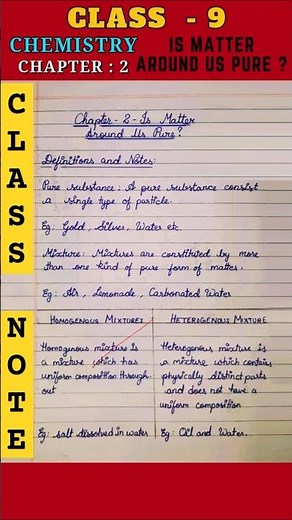 CLASS - 9
CHEMISTRY
CHAPTER : 2
IS MATTER
AROUND US PURE ?
CLASS
NOTE
Chapter-2-Is Matter
Around Us Pure?
Definitions and Notes:
Pure substance: A pure substance consist
a single type of particle.
Eg: Gold, Silver, Water etc.
Mixture: Mixtures are constituted by more
than one kind of pure form of matter.
Eg: Air, Lemonade, Carbonated Water
HOMOGENOUS MIXTURES
Homogenous mixture is
a mixture which has
uniform composition through-
out
Eg: salt dissolved in water
HETEROGENOUS MIXTURE
Heterogenous mixture is
a mixture which contains
physically distinct parts
and does not have a
uniform composition
Eg: Oil and Water.